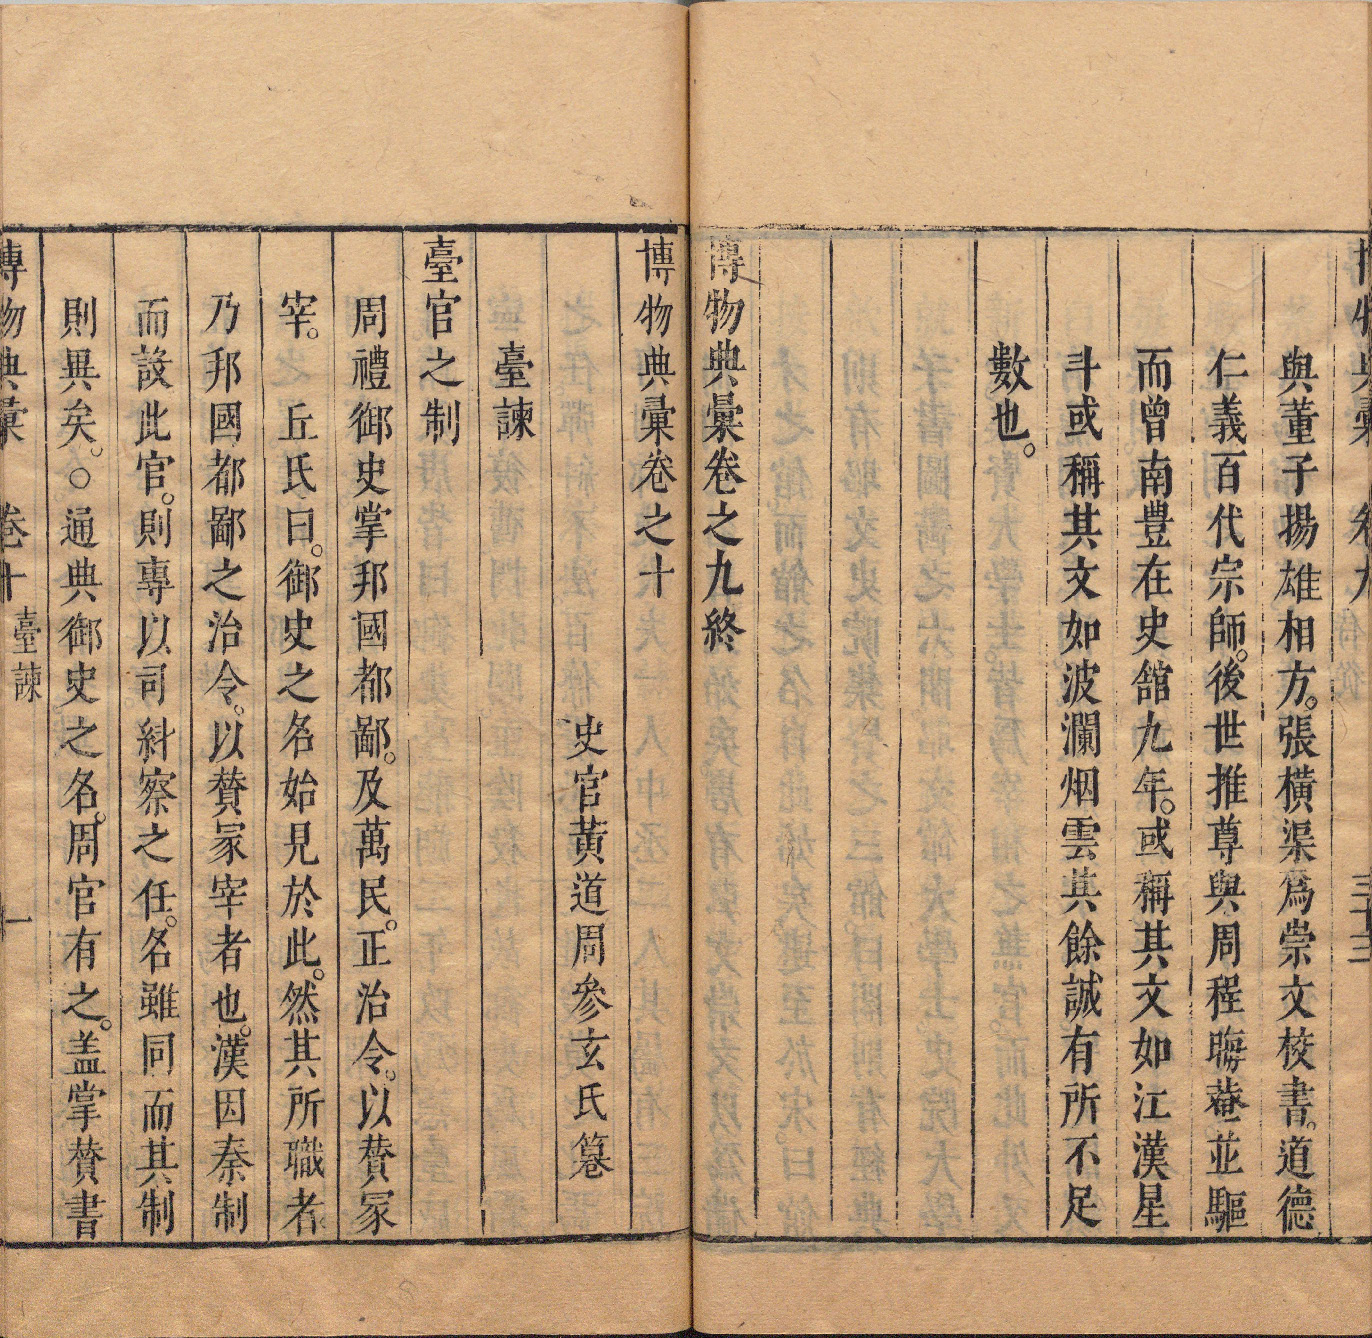 博物典彙 卷九 侍從 三十三
與董子揚雄相方。張橫渠爲崇文校書。道德
仁義百代宗師。後世推尊與周程晦菴並驅
而曾南豊在史舘九年。或稱其文如江漢星
斗或稱其文如波瀾烟雲其餘誠有所不足
數也。
博物典彙卷之九終
博物典彙卷之十
史官黃道周參玄氏篹
臺諫
臺官之制
周禮御史掌邦國都鄙。及萬民。正治令。以賛冢
宰。丘氏曰。御史之名始見於此。然其所職者。
乃邦國都鄙之治令。以賛冢宰者也。漢因秦制
而設此官。則專以司糾察之任。名雖同而其制
則異矣。○通典御史之名。周官有之。盖掌賛書
博物典彙 卷十 臺諫 一